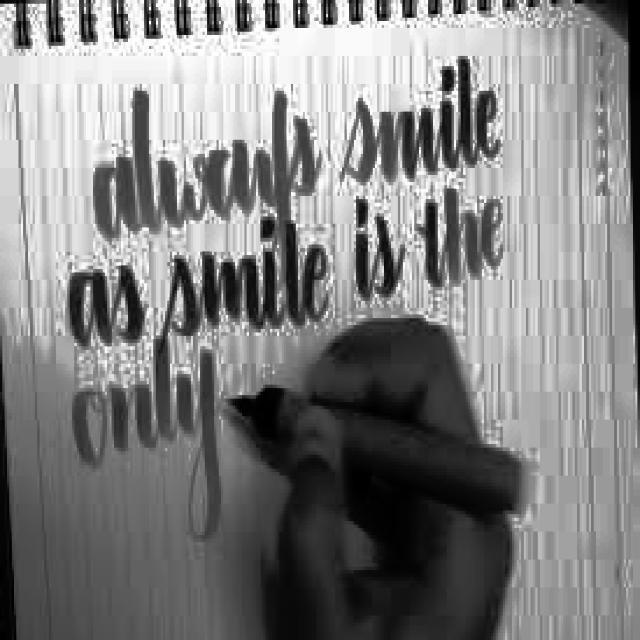 always smile
as smile is the
only